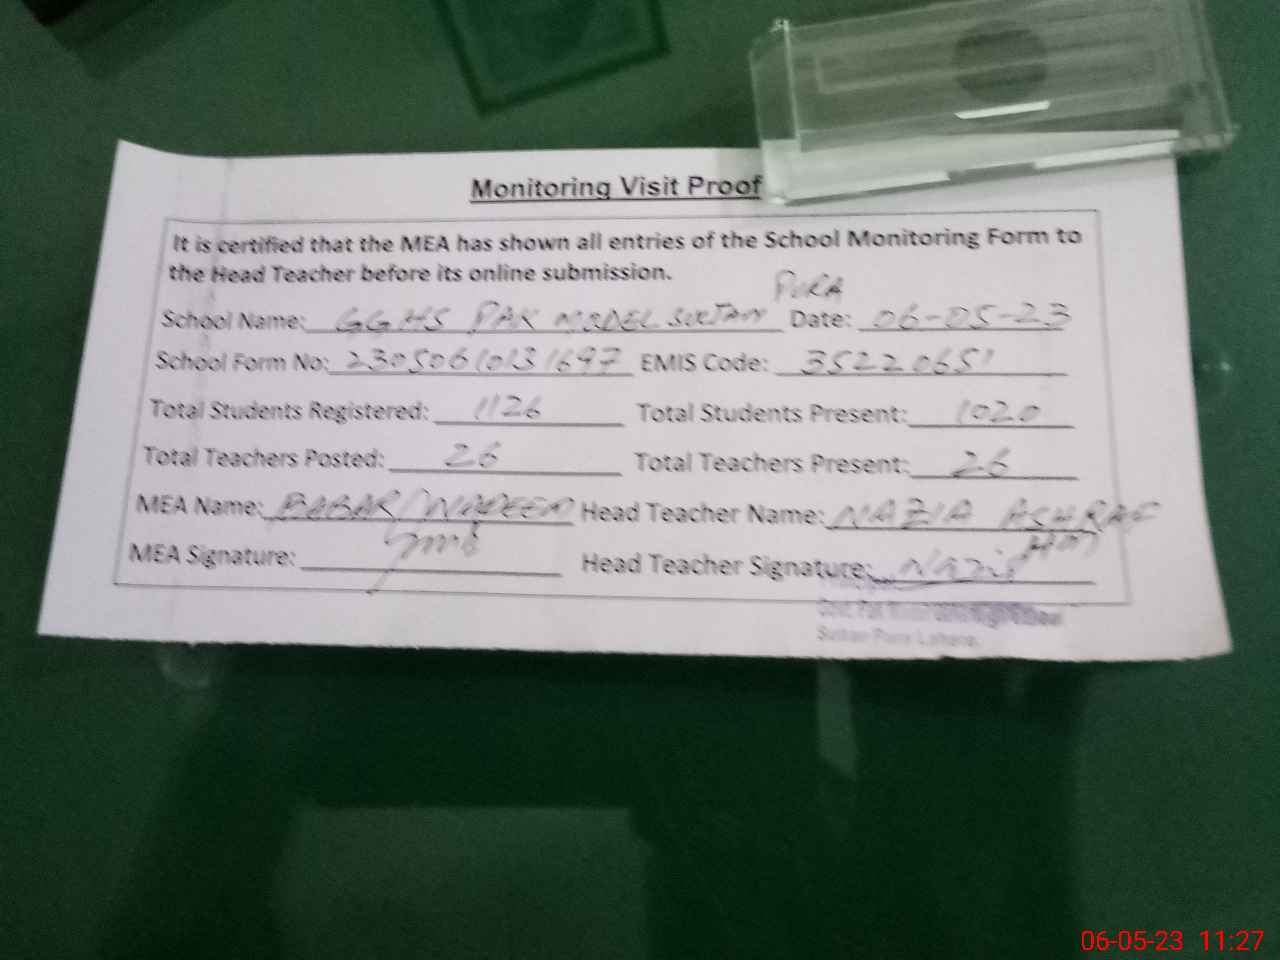 Monitoring Visit Proof
It is certified that the MEA has shown all entries of the School Monitoring Form to
the Head Teacher before its online submission.
PURA
School Name: GGHS PAK MODEL SULTAN Date: 06-05-23
School Form No: 23050610131697 EMIS Code: 35220651
Total Students Registered: 1126 Total Students Present: 1020
Total Teachers Posted: 26 Total Teachers Present: 26
MEA Name: BABAR NADEEM Head Teacher Name: NAZIA ASHRAF
MEA Signature: Head Teacher Signature: Nazia
Sultan Pura Lahore.
06-05-23 11:27